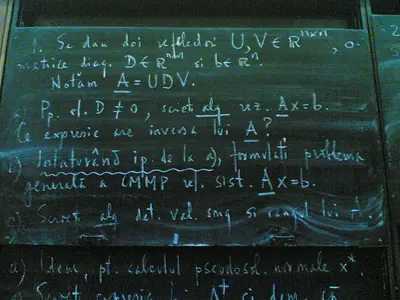 1. Se dau doi reflectori U, V ∈ ℝⁿˣⁿ, o
matrice diag. D ∈ ℝⁿˣⁿ si b ∈ ℝⁿ.
Notăm A = UDV.
a) Pp. el. D ≠ 0, scrieti alg rez. Ax = b.
Ce expresie are inversa lui A?
b) Inlaturând ip. de la a), formulati problema
generală a CMMP rel. sist. Ax = b.
c) Scrieti alg det. val. sing si rangul lui A.
d) Idem, pt. calculul pseudosol. normale x*.
Scrieti expresia A⁺ si dem. că